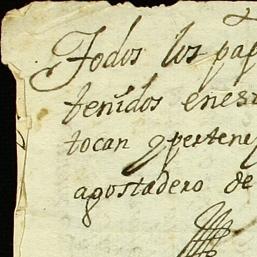 Todos los pap
tenidos enest
tocan y pertene
agostadero de